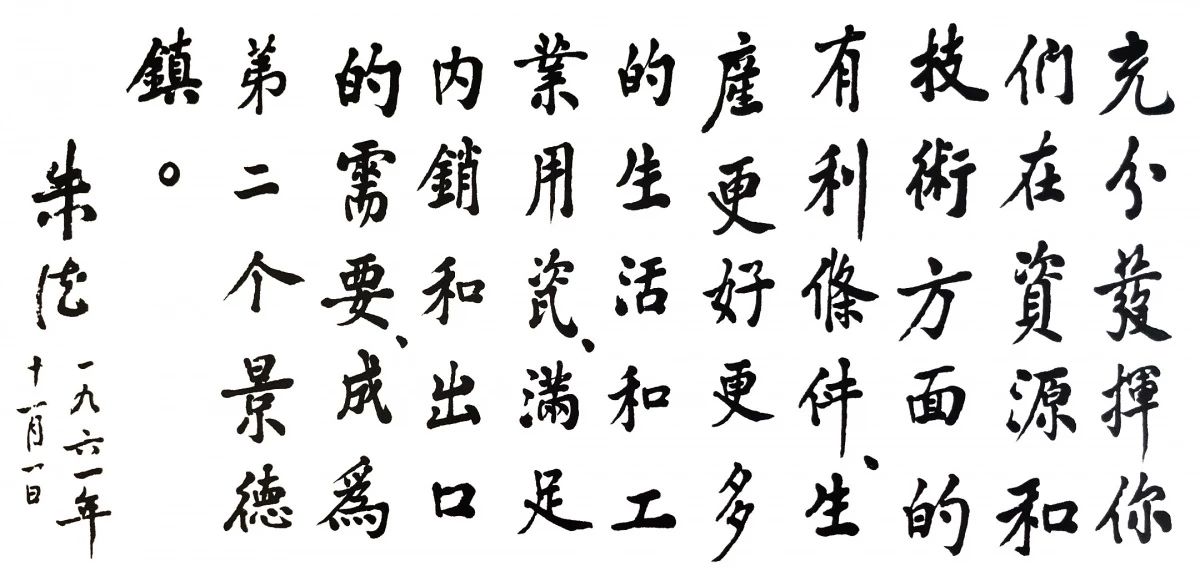 充分發揮你
們在資源和
技術方面的
有利條件、生
產更好更多
的生活和工
業用瓷、滿足
内銷和出口
的需要、成為
弟二个景德
鎮。
朱德
一九六一年
十一月一日